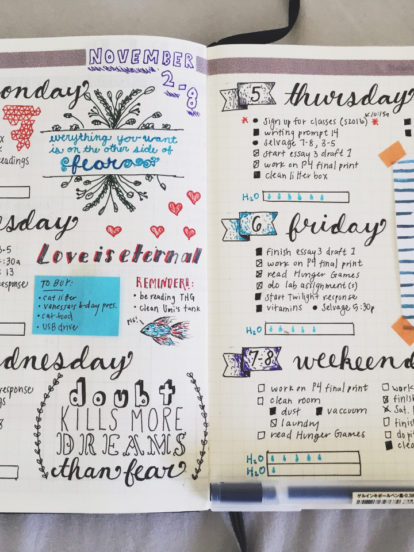 NOVEMBER
2-8
onday
eadings
everything you want
is on the other side of
fear
sday
3-5
4:30a
s 13
response
Love is eternal
TO BUY:
• cat litter
• vanessa's b-day pres.
• cat food
• USB drive
REMINDERS:
• be reading THG
• clean Umi's tank
dnesday
response
ngs
doubt
KILLS MORE
DREAMS
than fear
5 thursday
• sign up for classes (S2016)
writing prompt 14
• selvage 7-8, 3-5
start essay 3 draft 1
work on P4 final print
clean litter box
H2O
6 friday
finish essay 3 draft 1
work on P4 final print
read Hunger Games
do lab assignment(s)
start Twilight response
vitamins • selvage 5:30p
H2O
7-8 weekend
work on P4 final print
clean room
dust vaccum
laundry
read Hunger Games
work
finis
Sat.
finish
do p
clea
H2O
H2O
ゲルインキボールペン